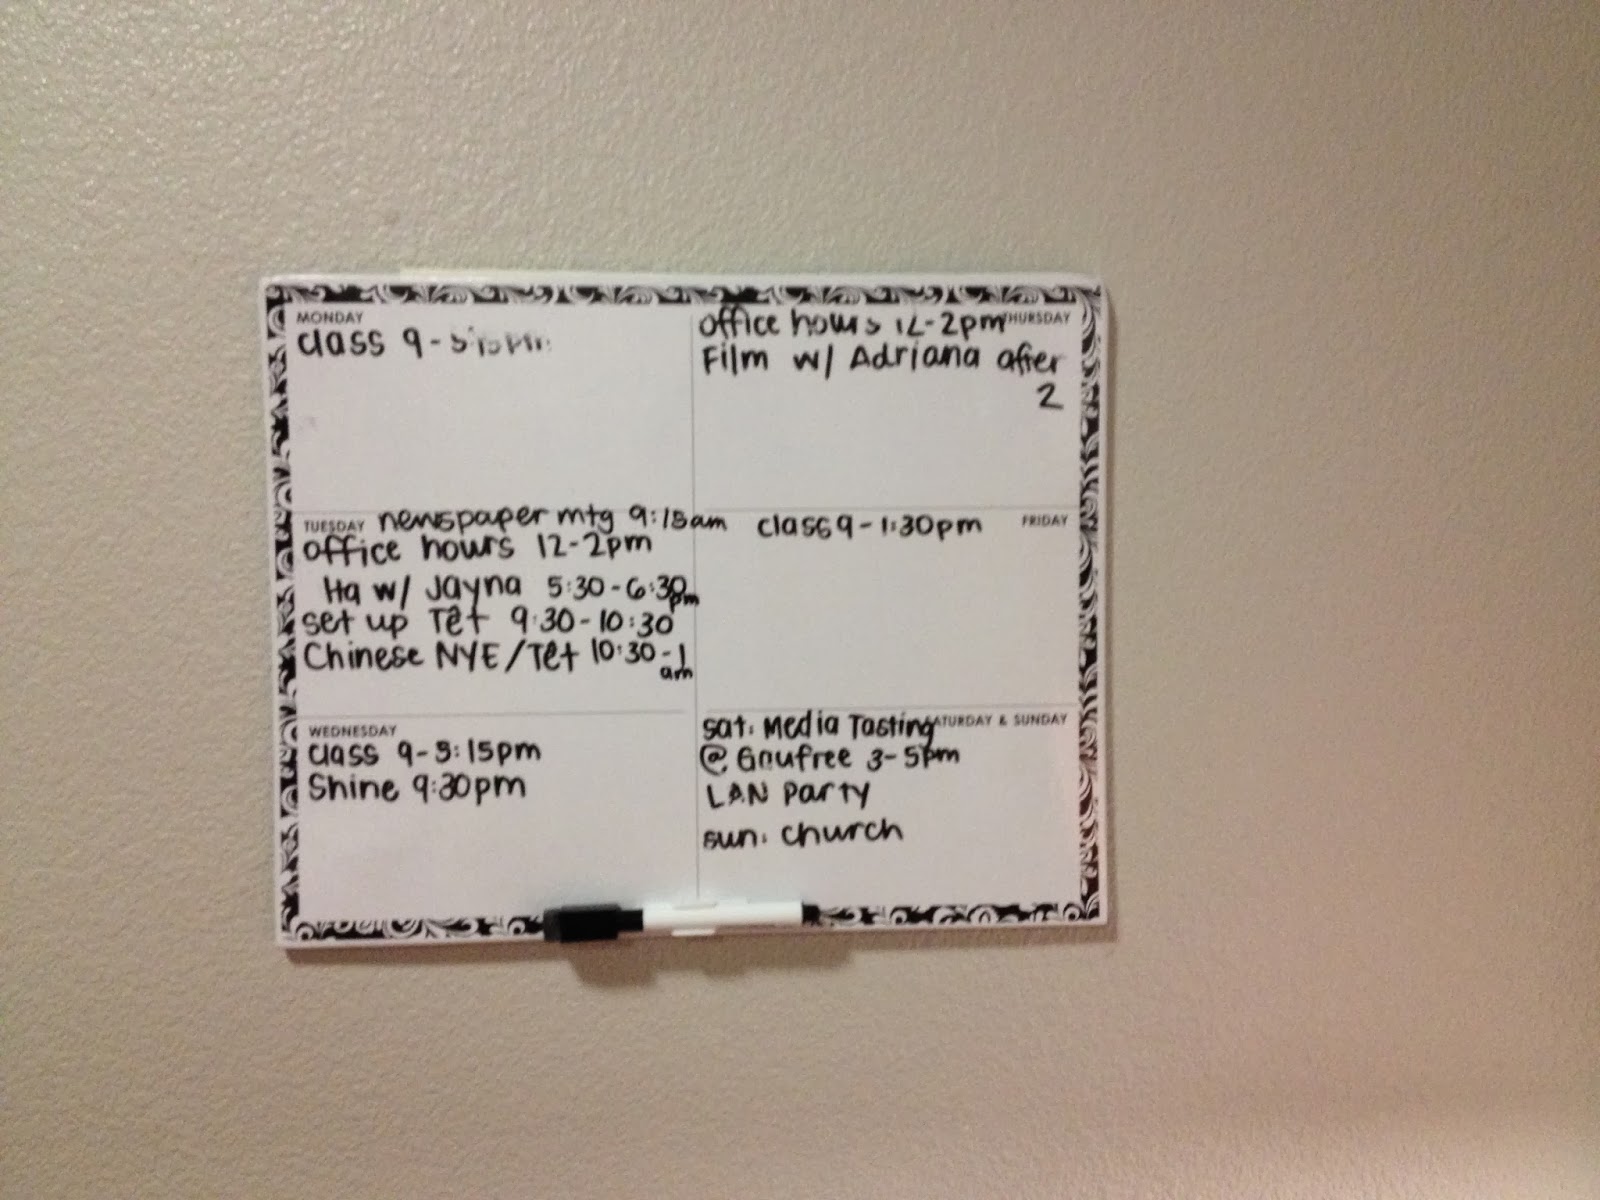 MONDAY
class 9-5:15pm
TUESDAY newspaper mtg 9:15am
office hours 12-2pm
Ha w/ Jayna 5:30-6:30pm
set up Tết 9:30-10:30
Chinese NYE/Tết 10:30-1am
WEDNESDAY
class 9-5:15pm
Shine 9:30pm
office hours 12-2pm THURSDAY
Film w/ Adriana after
2
class 9-1:30pm FRIDAY
sat: Media Tasting SATURDAY & SUNDAY
@ Gnufree 3-5pm
LAN Party
sun: church